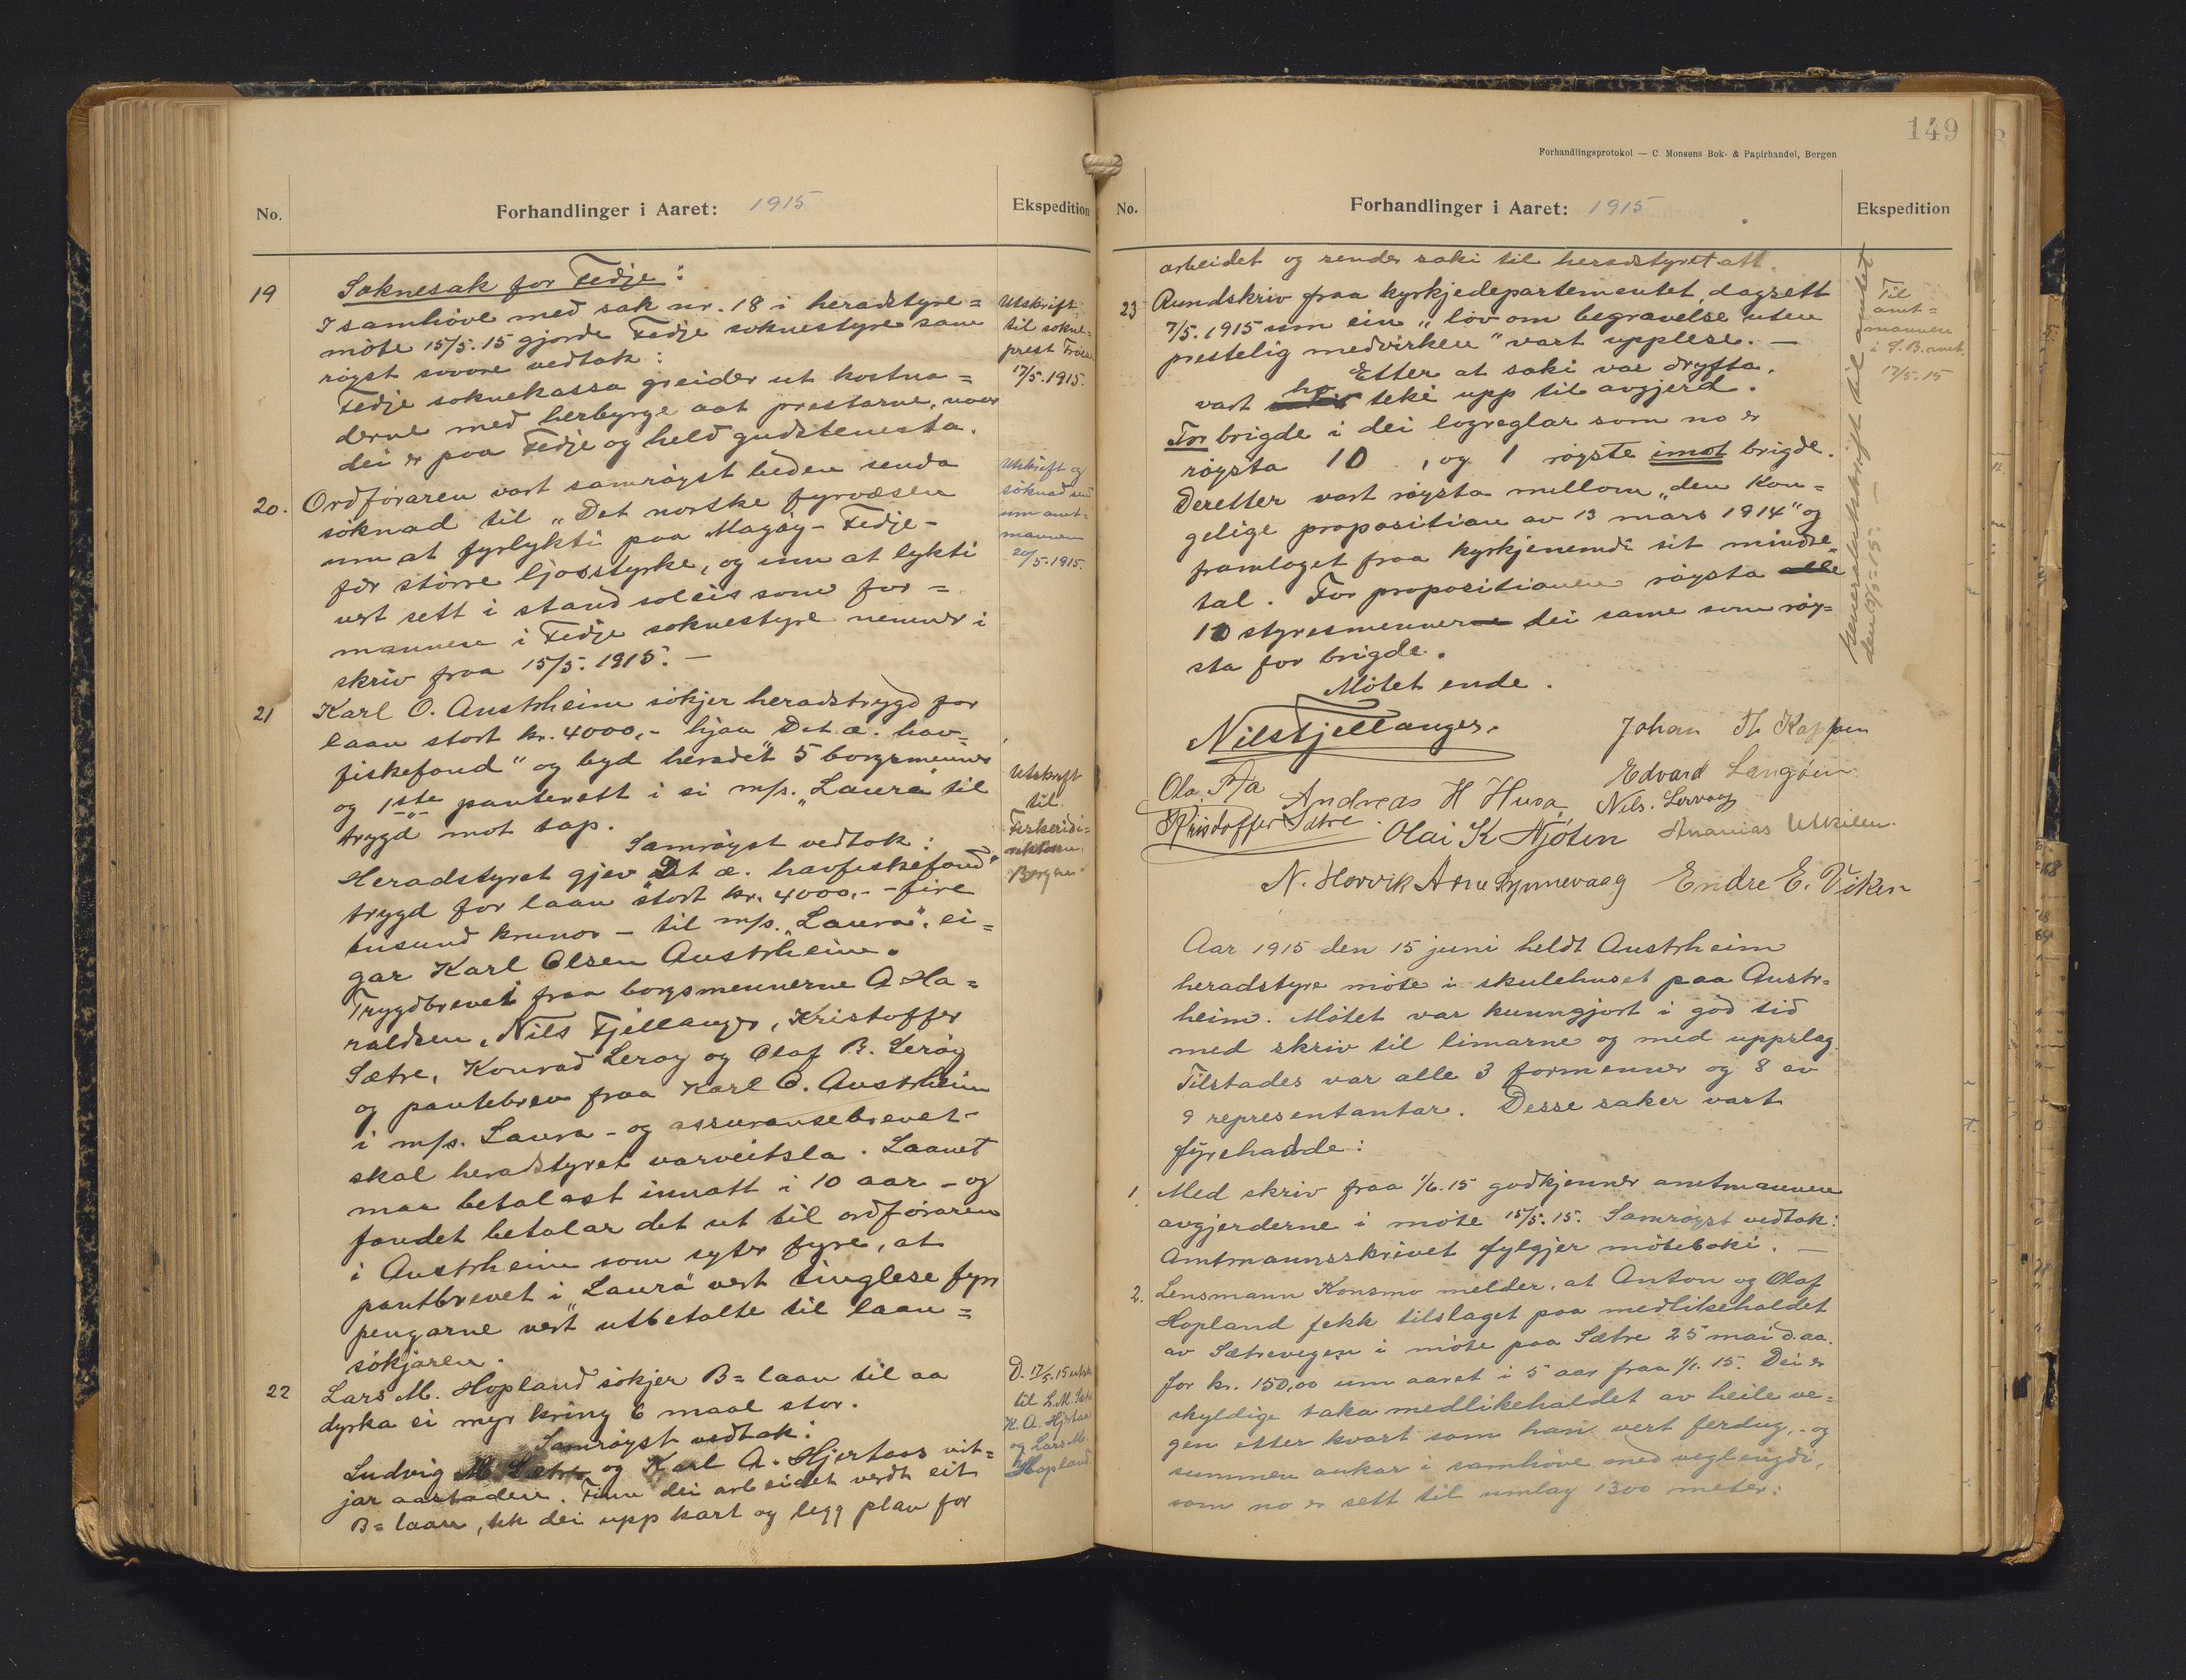 No.
Forhandlinger i Aaret: 1915
Ekspedition
19
Soknesak for Fedje:
I samhöve med sak nr. 18 i heradstyre=
möte 15/5.15 gjorde Fedje soknestyre sam
röyst sovore vedtak:
Fedje soknekassa greider ut kostna=
derne med herbyrge aat prestarne, naar
dei er paa Fedje og held gudstenesta.
Utskrift
til sokne=
prest
17/5.1915.
20.
Ordföraren vart samröyst beden senda
söknad til "Det norske fyrvæsen
um at fyrlykti paa Magöy-Fedje-
fær större ljosstyrke, og um at lykti
vert sett i stand soleis som for=
mannen i Fedje soknestyre nemner i
skriv fraa 15/5.1915.—
Utskrift og
söknad send
um amt=
mannen
20/5.1915.
21
Karl O. Austrheim sökjer heradstrygd for
laan stort kr. 4000,- hjaa "Det æ. hav=
fiskefond" og byd heradet 5 borgsmenner
og 1ste panterett i si m/s. "Laura" til
trygd mot tap.
Samröyst vedtok:
Heradstyret gjev "Det æ. havfiskefond"
trygd for laan stort kr. 4000,- - fire
tusund krunor - til m/s. "Laura", ei=
gar Karl Olsen Austrheim.
Trygdbrevet fraa borgsmennerne A Ha=
raldsen, Nils Fjellanger, Kristoffer
Sætre, Konrad Leröy og Olaf B. Leröy
og pantebrev fraa Karl O. Austrheim
i m/s. Laura - og assuransebrevet-
skal heradstyret varveitsla. Laanet
maa betalast innatt i 10 aar - og
fondet betalar det ut til ordföraren
i Austrheim som syter fyre, at
pantbrevet i "Laura" vert tinglese fyrr
pengarne vert utbetalte til laan=
sökjaren.
Utskrift
til
Fiskeridi=
rektören,
Bergen
22
Lars M. Hopland sökjer B=laan til aa
dyrka ei myr kring 6 maal stor.
Samröyst vedtok:
Ludvig M Sætre og Karl A. Hjertaas vit=
jar aastaden. Finn dei arbeidet verdt eit
B=laan, tek dei upp kart og legg plan for
D. 17/5.15 utskr
til L.M. Sætre
K. A. Hjertaas
og Lars M.
Hopland
149
Forhandlingsprotokol — C. Monsens Bok- & Papirhandel, Bergen
No.
Forhandlinger i Aaret: 1915
Ekspedition
arbeidet og sender saki til heradstyret att.
23
Rundskriv fraa kyrkjedepartementet, dagsett
7/5.1915 um ein "lov om begravelse uten
prestelig medvirken" vart upplese.—
Etter at saki var dryfta,
vart ho teki upp til avgjerd.
For brigde i dei logreglar som no er
röysta 10, og 1 röyste imot brigde.
Deretter vart röysta mellom "den Kon=
gelige proposition av 13 mars 1914" og
framlaget fraa kyrkjenemdi sit mindre=
tal. For propositionen röysta alle
10 styresmennerne dei same som röy=
sta for brigde.
Mötet ende.
Til
amt=
mannen
i S.B. amt.
17/5.15
Generalutskrift til amtet
den 19/5-15.
Nils Fjellanger.
Johan Th Kappen
Ola Aa
Andreas H Husa
Edvard Langöen
Nils. Lervaag
Kristoffer Sætre.
Olai K Njöten
Ananias Utkilen.
N. Horvik Arne Synnevaag Endre E. Viken
Aar 1915 den 15 juni heldt Austrheim
heradstyre möte i skulehuset paa Austr=
heim. Mötet var kunngjort i god tid
med skriv til limarne og med uppslag.
Tilstades var alle 3 formenner og 8 av
9 representantar. Desse saker vart
fyrehadde:
1
Med skriv fraa 1/6.15 godkjenner amtmannen
avgjerderne i möte 15/5.15. Samröyst vedtok:
Amtmannsskrivet fylgjer möteboki.—
2.
Lensmann Konsmo melder, at Anton og Olaf
Hopland fekk tilslaget paa medlikehaldet
av Sætrevegen i möte paa Sætre 25 mai d.aa.
for kr. 150,00 um aaret i 5 aar fraa 1/1.15. Dei er
skyldige taka medlikehaldet av heile ve=
gen etter kvart som han vert ferdug, - og
summen aukar i samhöve med veglengdi,
som no er sett til umlag 1300 meter: